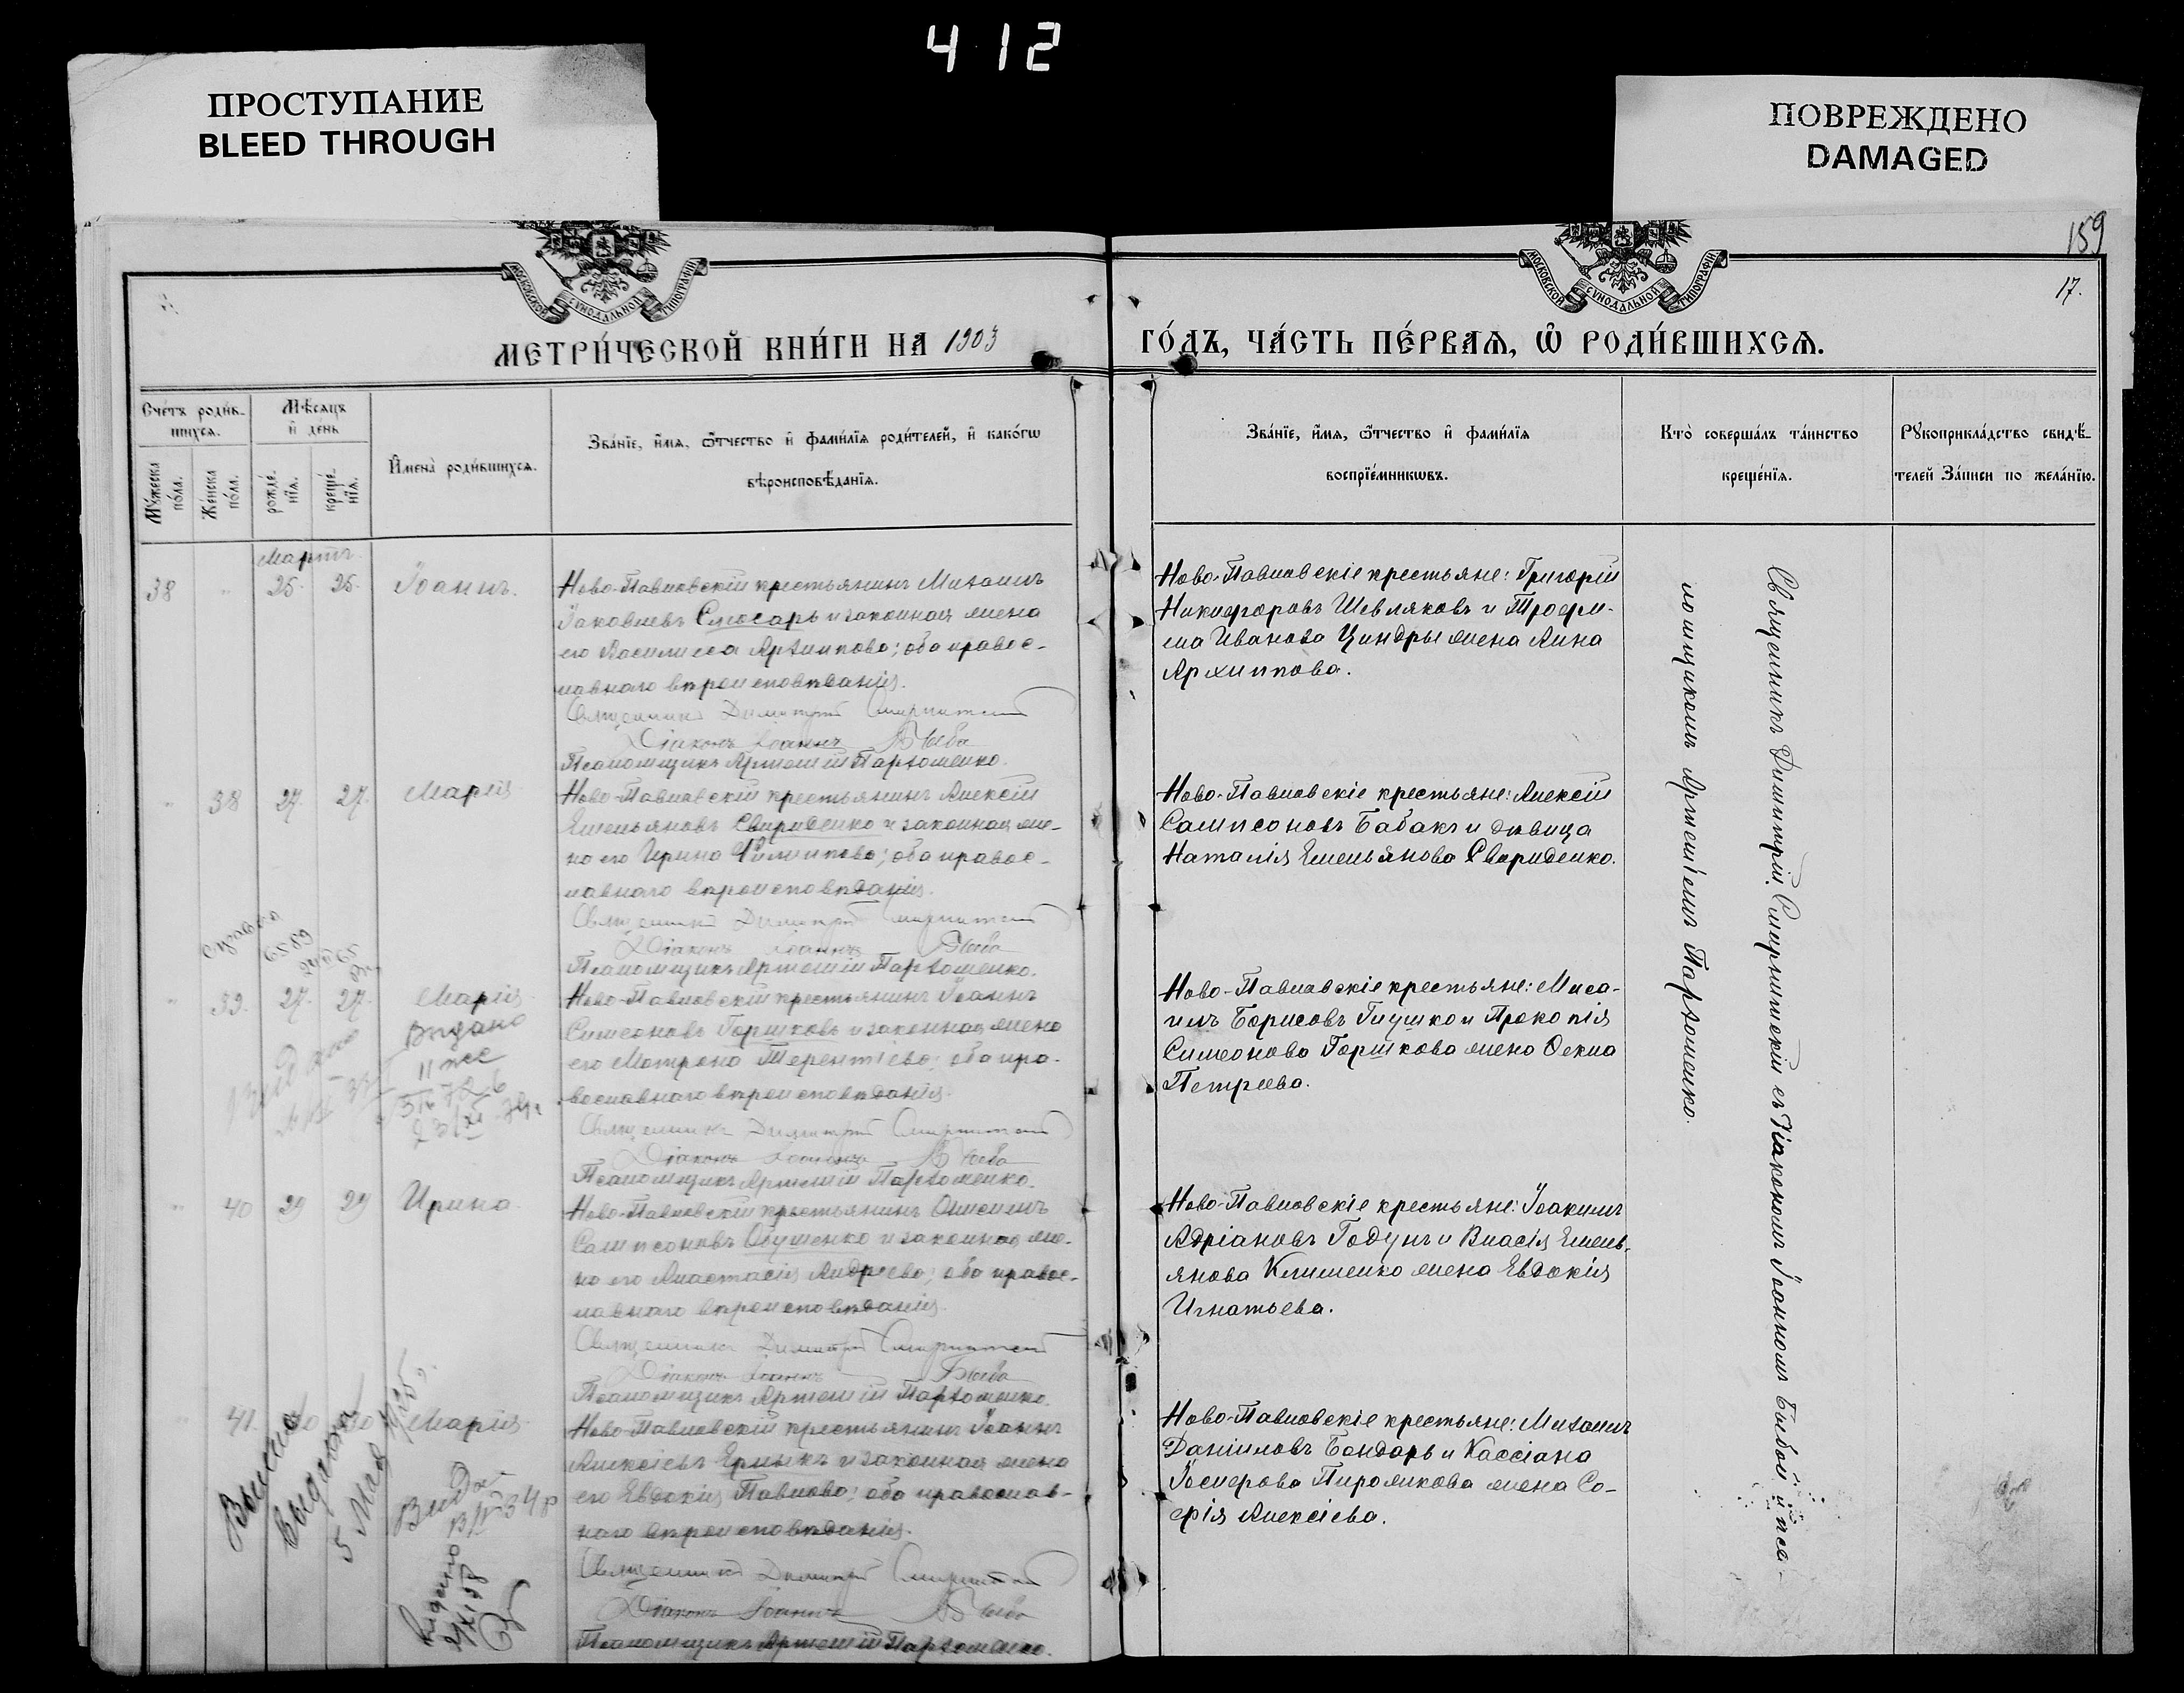 412
ПРОСТУПАНИЕ
BLEED THROUGH
ПОВРЕЖДЕНО
DAMAGED
159
17.
МОСКОВСКОЙ СѴНОДАЛЬНОЙ ТИПОГРАФІИ
МОСКОВСКОЙ СѴНОДАЛЬНОЙ ТИПОГРАФІИ
МЕТРИ́ЧЕСКОЙ КНИ́ГИ НА 1903
ГО́ДЪ, ЧА́СТЬ ПЕ́РВАѦ, Ѽ РОДИ́ВШИХСѦ.
Сче́тъ роди́в-
шихсѧ.
Мꙋ́жеска по́ла.
Же́нска по́ла.
Мѣ́сѧцъ
и҆ день
рожде́-
нїѧ.
креще́-
нїѧ.
И҆мена̀ роди́вшихсѧ.
Зва́нїе, и҆́мѧ, ѻ҆́тчество и҆ фами́лїѧ роди́телей, и҆ како́гѡ
вѣроисповѣ́данїѧ.
Зва́нїе, и҆́мѧ, ѻ҆́тчество и҆ фами́лїѧ
воспрїе́мникѡвъ.
Кто̀ соверша́лъ та́инство
креще́нїѧ.
Рꙋкоприкла́дство свидѣ́-
телей за́писи по жела́нїю.
Мартъ.
38 " 25. 25. Іоаннъ.
Ново-Павловскій крестьянинъ Михаилъ
Іаковлевъ Слюсарь и законная жена
его Василисса Архиппова; оба правос-
лавнаго вѣроисповѣданія.
Священникъ Димитрій Смирнитскій
Діаконъ Іоаннъ Быба
Псаломщикъ Артемій Пархоменко.
Ново-Павловскіе крестьяне: Григорій
Никифоровъ Шевляковъ и Трофи-
ма Иванова Циндры жена Анна
Архиппова.
" 38 27. 27. Марія
Ново-Павловскій крестьянинъ Алексій
Емельяновъ Свириденко и законная же-
на его Ирина Филиппова; оба правос-
лавнаго вѣроисповѣданія.
Священникъ Димитрій Смирнитскій
Діаконъ Іоаннъ Быба
Псаломщикъ Артемій Пархоменко.
Ново-Павловскіе крестьяне: Алексій
Сампсоновъ Бабакъ и дѣвица
Наталія Емельянова Свириденко.
" 39. 27. 27. Марія
Выдано
Ново-Павловскій крестьянинъ Іоаннъ
Симеоновъ Горшковъ и законная жена
его Матрона Терентіева; оба пра-
вославнаго вѣроисповѣданія.
Священникъ Димитрій Смирнитскій
Діаконъ Іоаннъ Быба
Псаломщикъ Артемій Пархоменко.
Ново-Павловскіе крестьяне: Миха-
илъ Борисовъ Глушко и Прокопія
Симеонова Горшкова жена Фекла
Петрова.
" 40 29 29 Ирина.
Ново-Павловскій крестьянинъ Онисимъ
Сампсоновъ Обушенко и законная же-
на его Анастасія Андреева; оба правос-
лавнаго вѣроисповѣданія.
Священникъ Димитрій Смирнитскій
Діаконъ Іоаннъ Быба
Псаломщикъ Артемій Пархоменко.
Ново-Павловскіе крестьяне: Іоакимъ
Адріановъ Годунъ и Власія Емель-
янова Клименко жена Евдокія
Игнатьева.
" 41. 30 30 Марія
Ново-Павловскій крестьянинъ Іоаннъ
Алексіевъ Ермыкъ и законная жена
его Евдокія Павлова; оба православ-
наго вѣроисповѣданія.
Священникъ Димитрій Смирнитскій
Діаконъ Іоаннъ Быба
Псаломщикъ Артемій Пархоменко.
Ново-Павловскіе крестьяне: Михаилъ
Даніиловъ Бондарь и Кассіана
Іосифова Пирожкова жена Со-
фія Алексіева.
выдана
5 Мая
Священникъ Димитрій Смирнитскій съ Діакономъ Іоанномъ Быбой и пса-
ломщикомъ Артеміемъ Пархоменко.